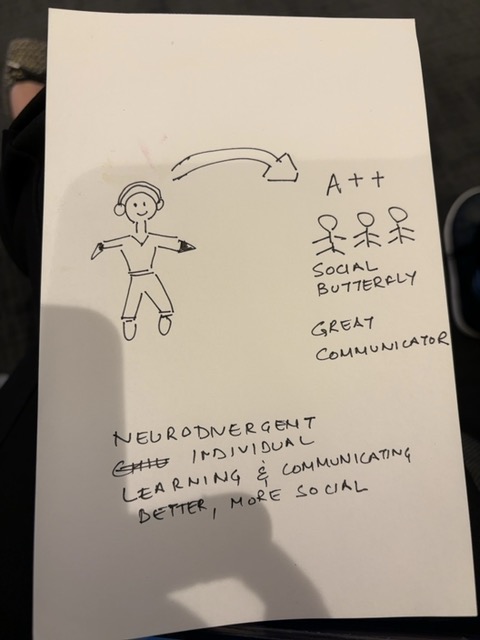 A++
SOCIAL
BUTTERFLY
GREAT
COMMUNICATOR
NEURODNERGENT
INDIVIDUAL
LEARNING & COMMUNICATING
BETTER, MORE SOCIAL